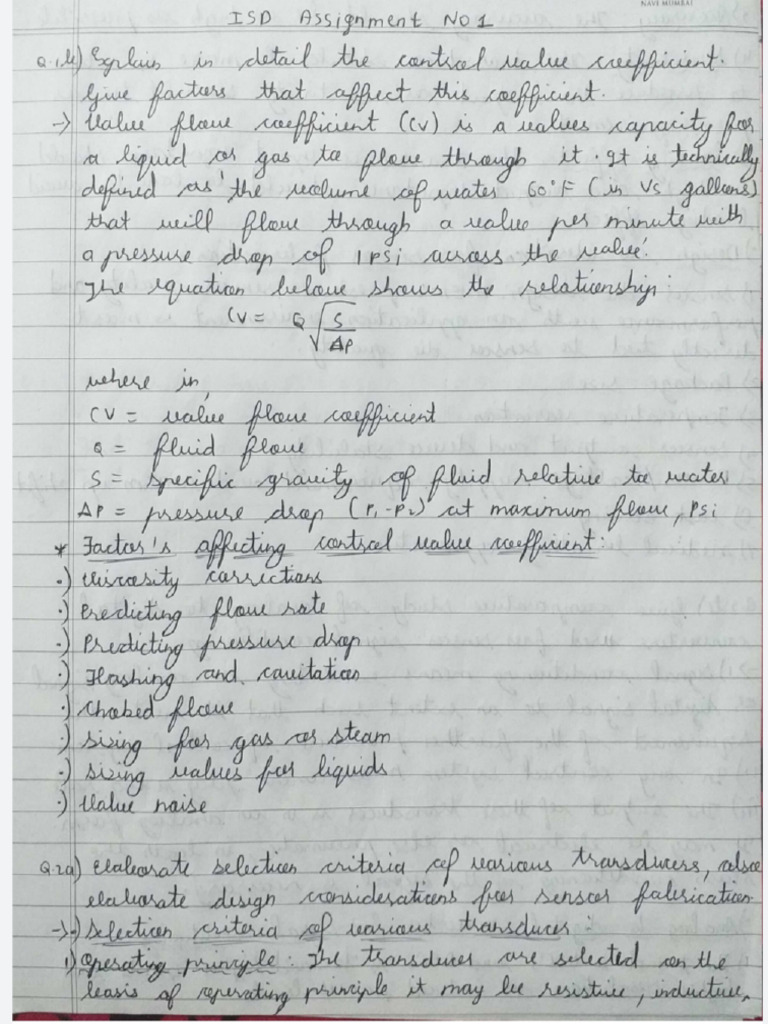 NAVI MUMBAI
ISD Assignment No 1
Q.1.b) Explain in detail the control valve coefficient.
Give factors that affect this coefficient.
-> Valve flow coefficient (CV) is a valves capacity for
a liquid or gas to flow through it. It is technically
defined as 'the volume of water 60°F (in US gallons)
that will flow through a valve per minute with
a pressure drop of 1 PSi across the valve'.
The equation below shows the relationship:
CV = Q√(S/ΔP)
where in,
CV = valve flow coefficient
Q = fluid flow
S = specific gravity of fluid relative to water
ΔP = pressure drop (P₁-P₂) at maximum flow, PSi
* Factor's affecting control valve coefficient:
•) Viscosity corrections
•) Predicting flow rate
•) Predicting pressure drop
•) Flashing and cavitation
•) Choked flow
•) Sizing for gas or steam
•) Sizing valves for liquids
•) Valve noise
Q.2a) Elaborate selection criteria of various transducers, also
elaborate design considerations for sensor fabrication.
->•) Selection criteria of various transducer:
1) Operating principle: The transducer are selected on the
basis of operating principle it may be resistive, inductive,